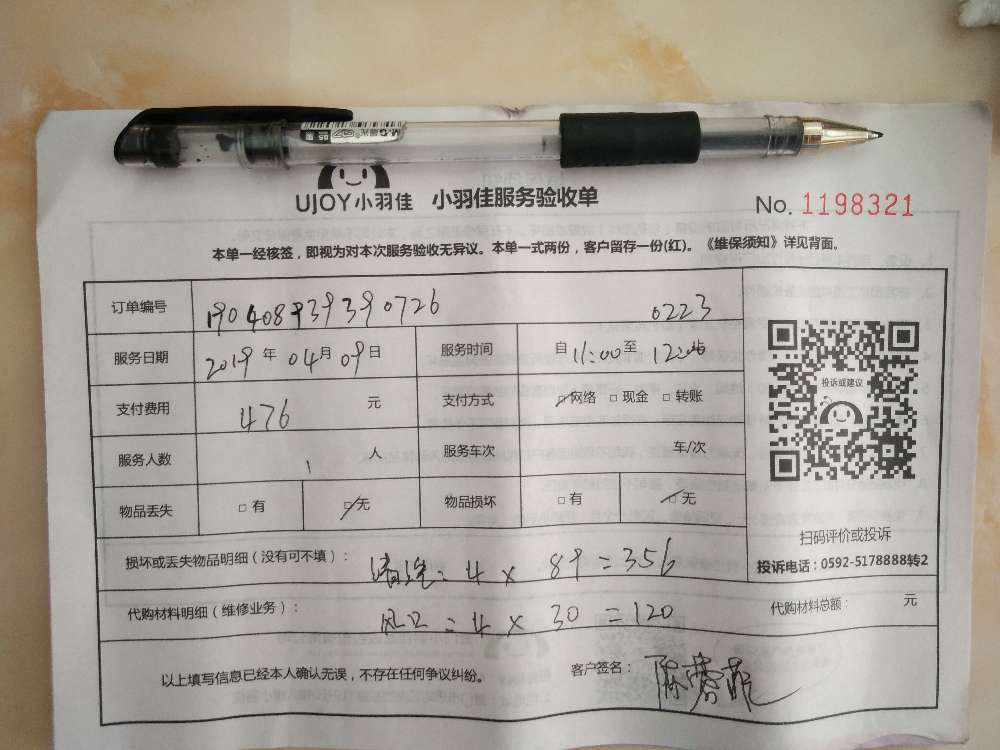 M&G 晨光 0.5
UJOY小羽佳 小羽佳服务验收单
No. 1198321
本单一经核签，即视为对本次服务验收无异议。本单一式两份，客户留存一份(红)。《维保须知》详见背面。
订单编号 0223
服务日期 2019 年 04 月 09 日 服务时间 自 11:00 至
支付费用 476 元 支付方式 网络 □ 现金 □ 转账
服务人数 1 人 服务车次 车/次
物品丢失 □ 有 □ 无 物品损坏 □ 有 □ 无
投诉或建议
扫码评价或投诉
投诉电话：0592-5178888转2
损坏或丢失物品明细（没有可不填）： 清洗：4 × 89 = 356
代购材料明细（维修业务）： = 4 × 30 = 120 代购材料总额： 元
以上填写信息已经本人确认无误，不存在任何争议纠纷。 客户签名：